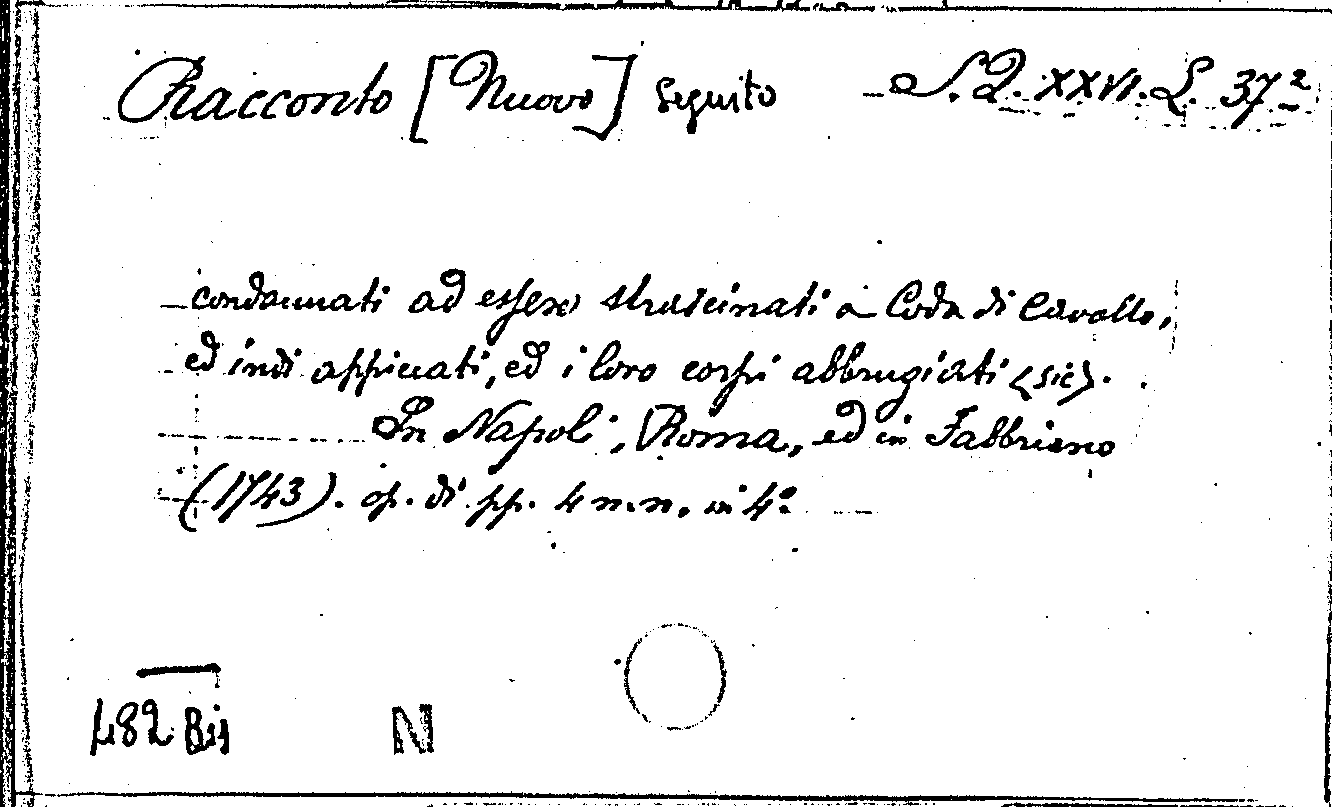 Racconto [Nuovo] seguito — S.Q. XXVI. L. 37²
condannati ad essere strascinati a Coda di Cavallo,
ed indi appiccati, ed i loro corpi abbrugiati (sic).
In Napoli, Roma, ed in Fabbriano
(1743). op. di pp. 4 n.n. in 4°.
482 Bis
N